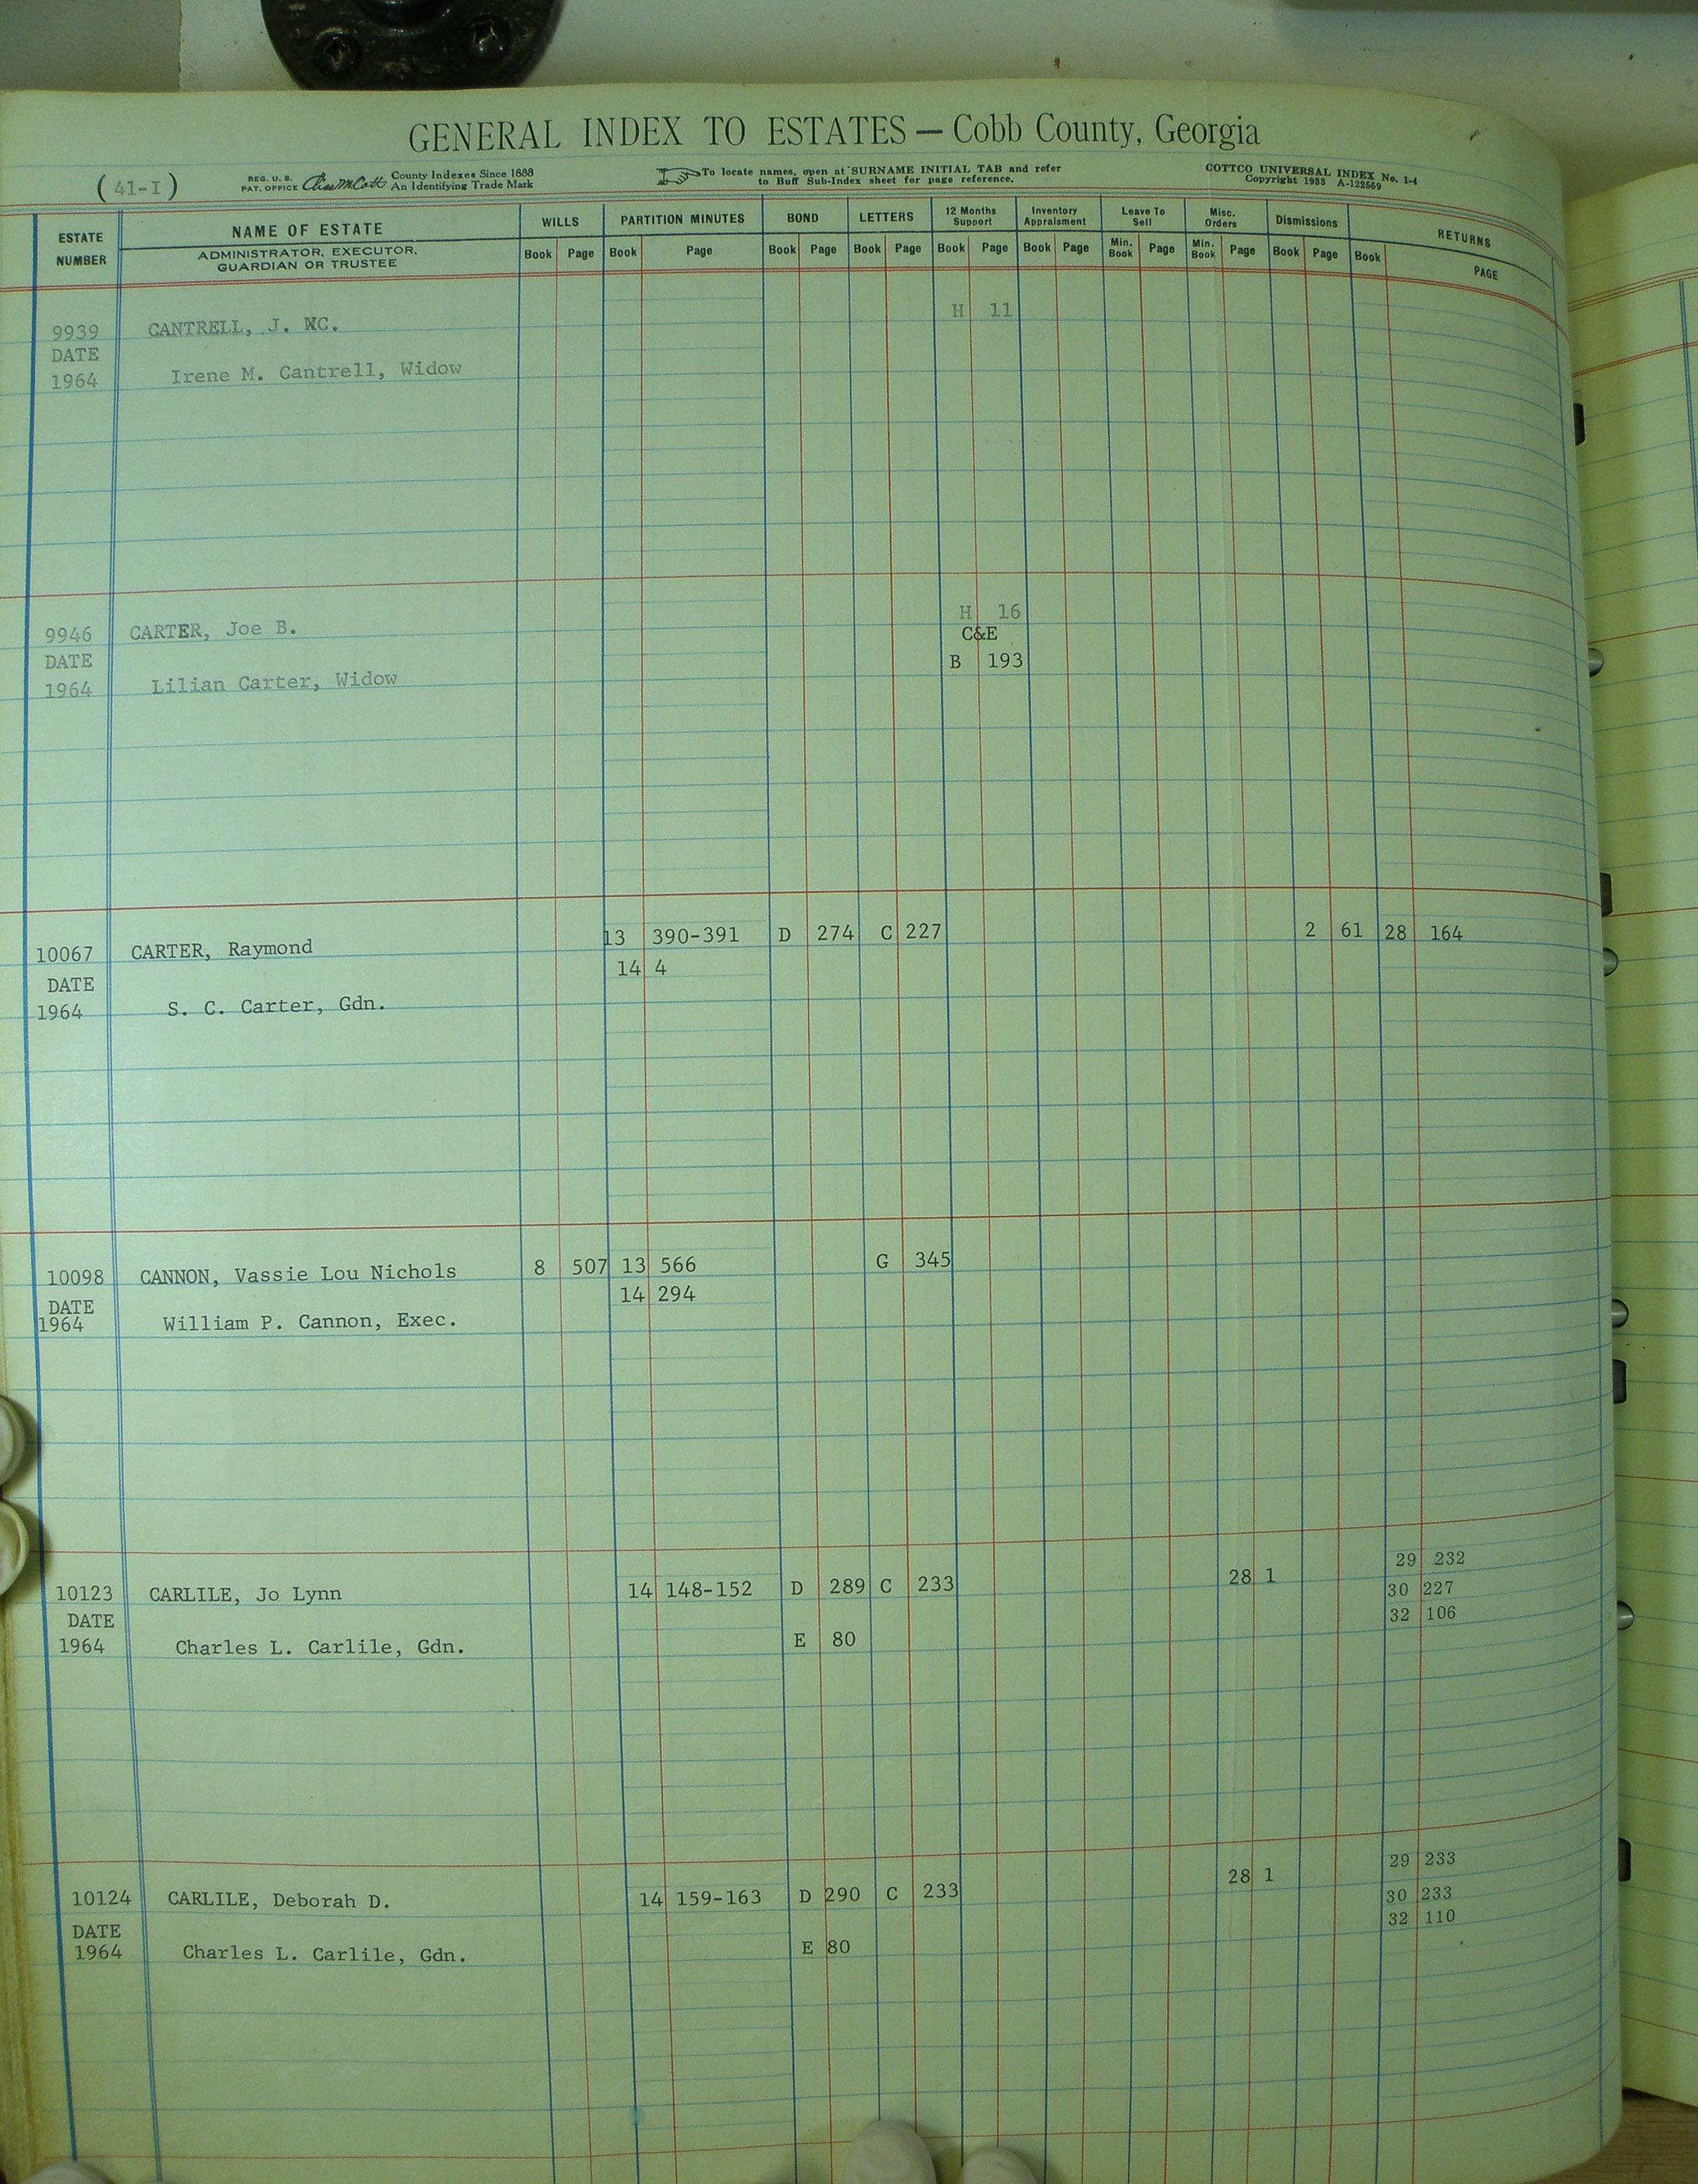 GENERAL INDEX TO ESTATES — Cobb County, Georgia
(41-I)
REG. U. S. PAT. OFFICE Chas McCott County Indexes Since 1888 An Identifying Trade Mark
To locate names, open at SURNAME INITIAL TAB and refer to Buff Sub-Index sheet for page reference.
COTTCO UNIVERSAL INDEX No. 1-4
Copyright 1933 A-122559
ESTATE NUMBER
NAME OF ESTATE
ADMINISTRATOR, EXECUTOR, GUARDIAN OR TRUSTEE
WILLS PARTITION MINUTES BOND LETTERS 12 Months Support Inventory Appraisment Leave To Sell Misc. Orders Dismissions RETURNS
Book Page Book Page Book Page Book Page Book Page Book Page Min. Book Page Min. Book Page Book Page Book PAGE
H 11
9939 CANTRELL, J. WC.
DATE
1964 Irene M. Cantrell, Widow
H 16
9946 CARTER, Joe B. C&E
DATE B 193
1964 Lilian Carter, Widow
13 390-391 D 274 C 227 2 61 28 164
10067 CARTER, Raymond
14 4
DATE
1964 S. C. Carter, Gdn.
10098 CANNON, Vassie Lou Nichols 8 507 13 566 G 345
14 294
DATE
1964 William P. Cannon, Exec.
29 232
10123 CARLILE, Jo Lynn 14 148-152 D 289 C 233 28 1 30 227
DATE 32 106
1964 Charles L. Carlile, Gdn. E 80
29 233
10124 CARLILE, Deborah D. 14 159-163 D 290 C 233 28 1 30 233
DATE 32 110
1964 Charles L. Carlile, Gdn. E 80